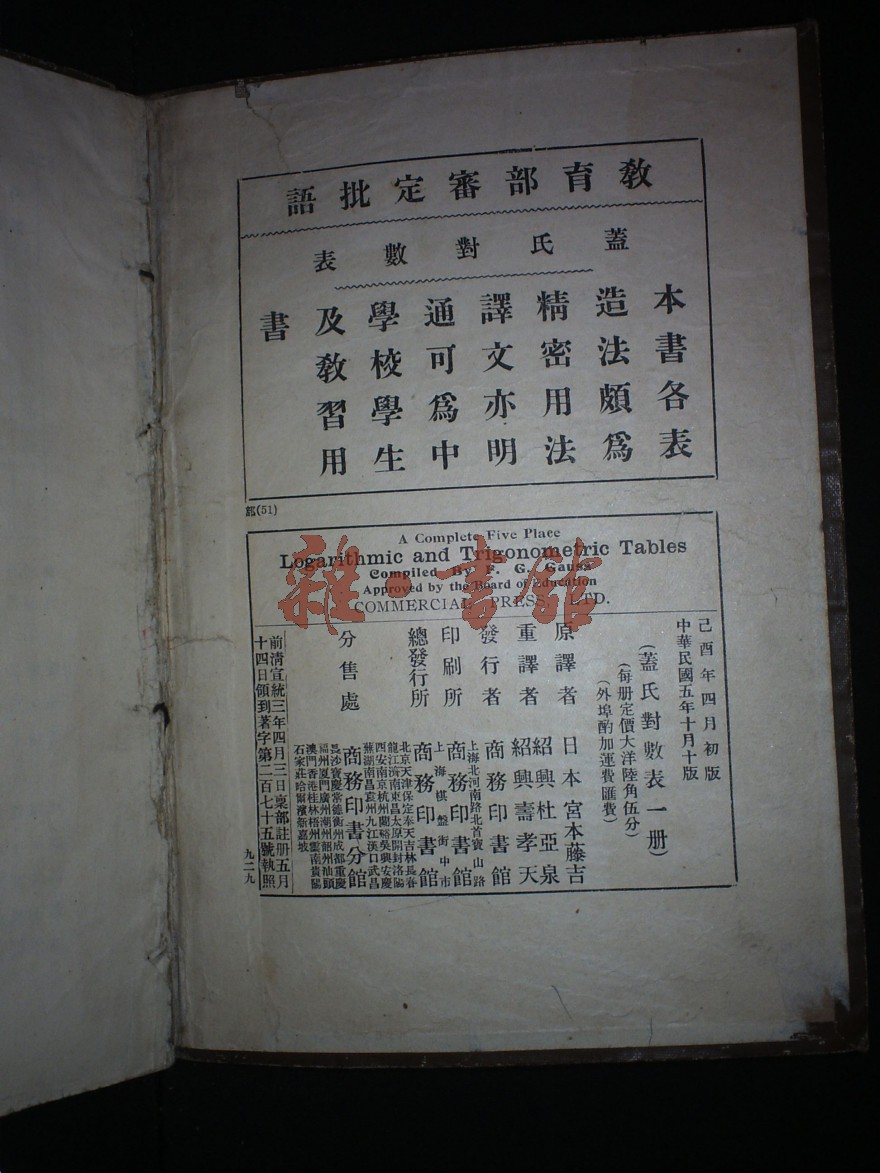 教育部審定批語
蓋氏對數表
本書各表
造法頗爲
精密用法
譯文亦明
通可爲中
學校學生
及教習用
書
部(51)
A Complete Five Place
Logarithmic and Trigonometric Tables
Compiled By F. G. Gauss
Approved by the Board of Education
COMMERCIAL PRESS, LTD.
己酉年四月初版
中華民國五年十月十版
(蓋氏對數表一册)
(每册定價大洋陸角伍分)
(外埠酌加運費匯費)
原譯者 日本宮本藤吉
重譯者 紹興杜亞泉
紹興壽孝天
發行者 商務印書館
上海北河南路北首寶山路
印刷所 商務印書館
上海棋盤街中市
總發行所 商務印書館
北京天津保定奉天吉林長春
龍江濟南東昌太原開封洛陽
西安南京杭州蘭谿吳興安慶
蕪湖南昌袁州九江漢口武昌
分售處 商務印書分館
長沙寶慶常德衡州成都重慶
福州廈門廣州潮州韶州汕頭
澳門香港桂林梧州雲南貴陽
石家莊哈爾濱新嘉坡
前清宣統三年四月三日稟部註册五月
十四日領到著字第二百七十五號執照
九二九
雜·書館